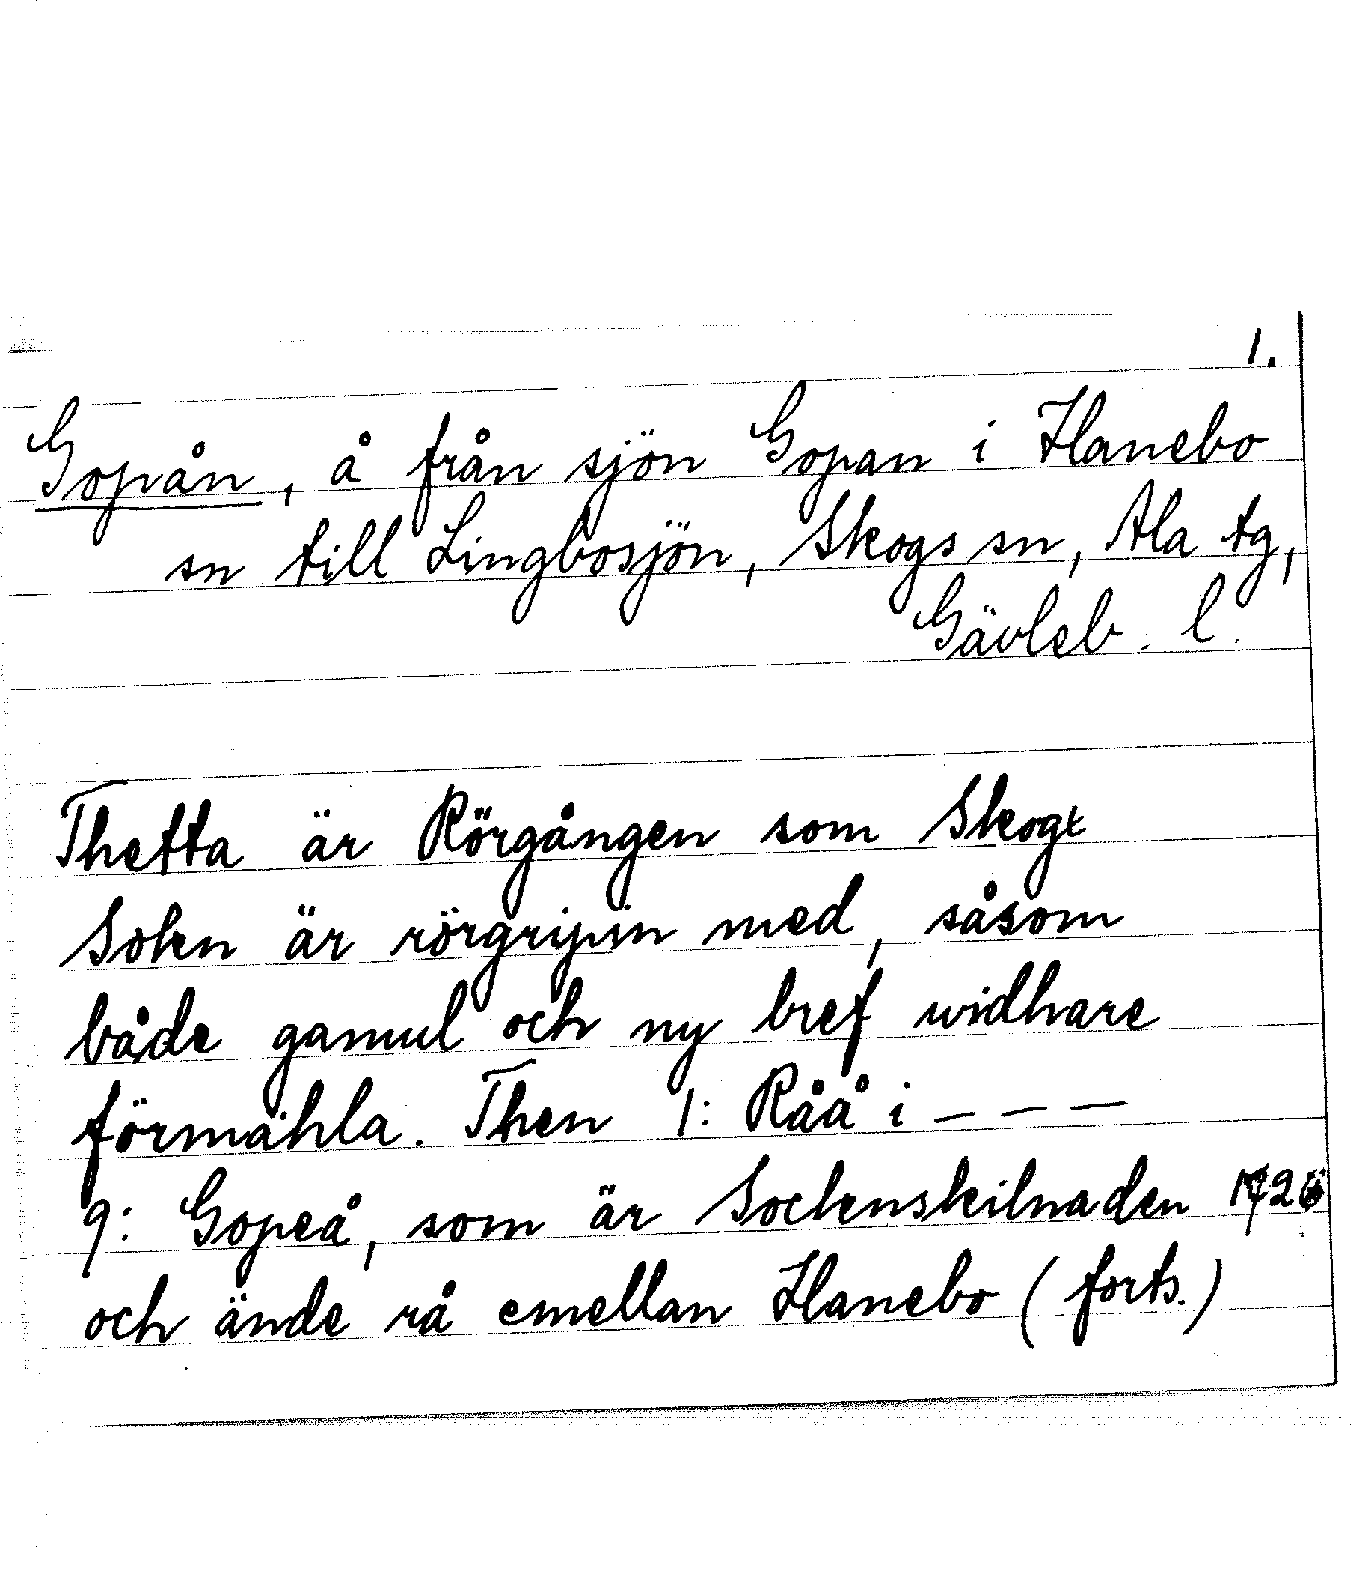 1.
Gopån, å från sjön Gopan i Hanebo
sn till Lingbosjön, Skogs sn, Ala tg,
Gävleb. l.
Thetta är Rörgången som Skogx
Sokn är rörgripin med, såsom
både gamul och ny bref widhare
förmähla. Then 1: Råå i – – –
9: Gopeå, som är Sockenskilnaden
och ände rå emellan Hanebo (forts.)